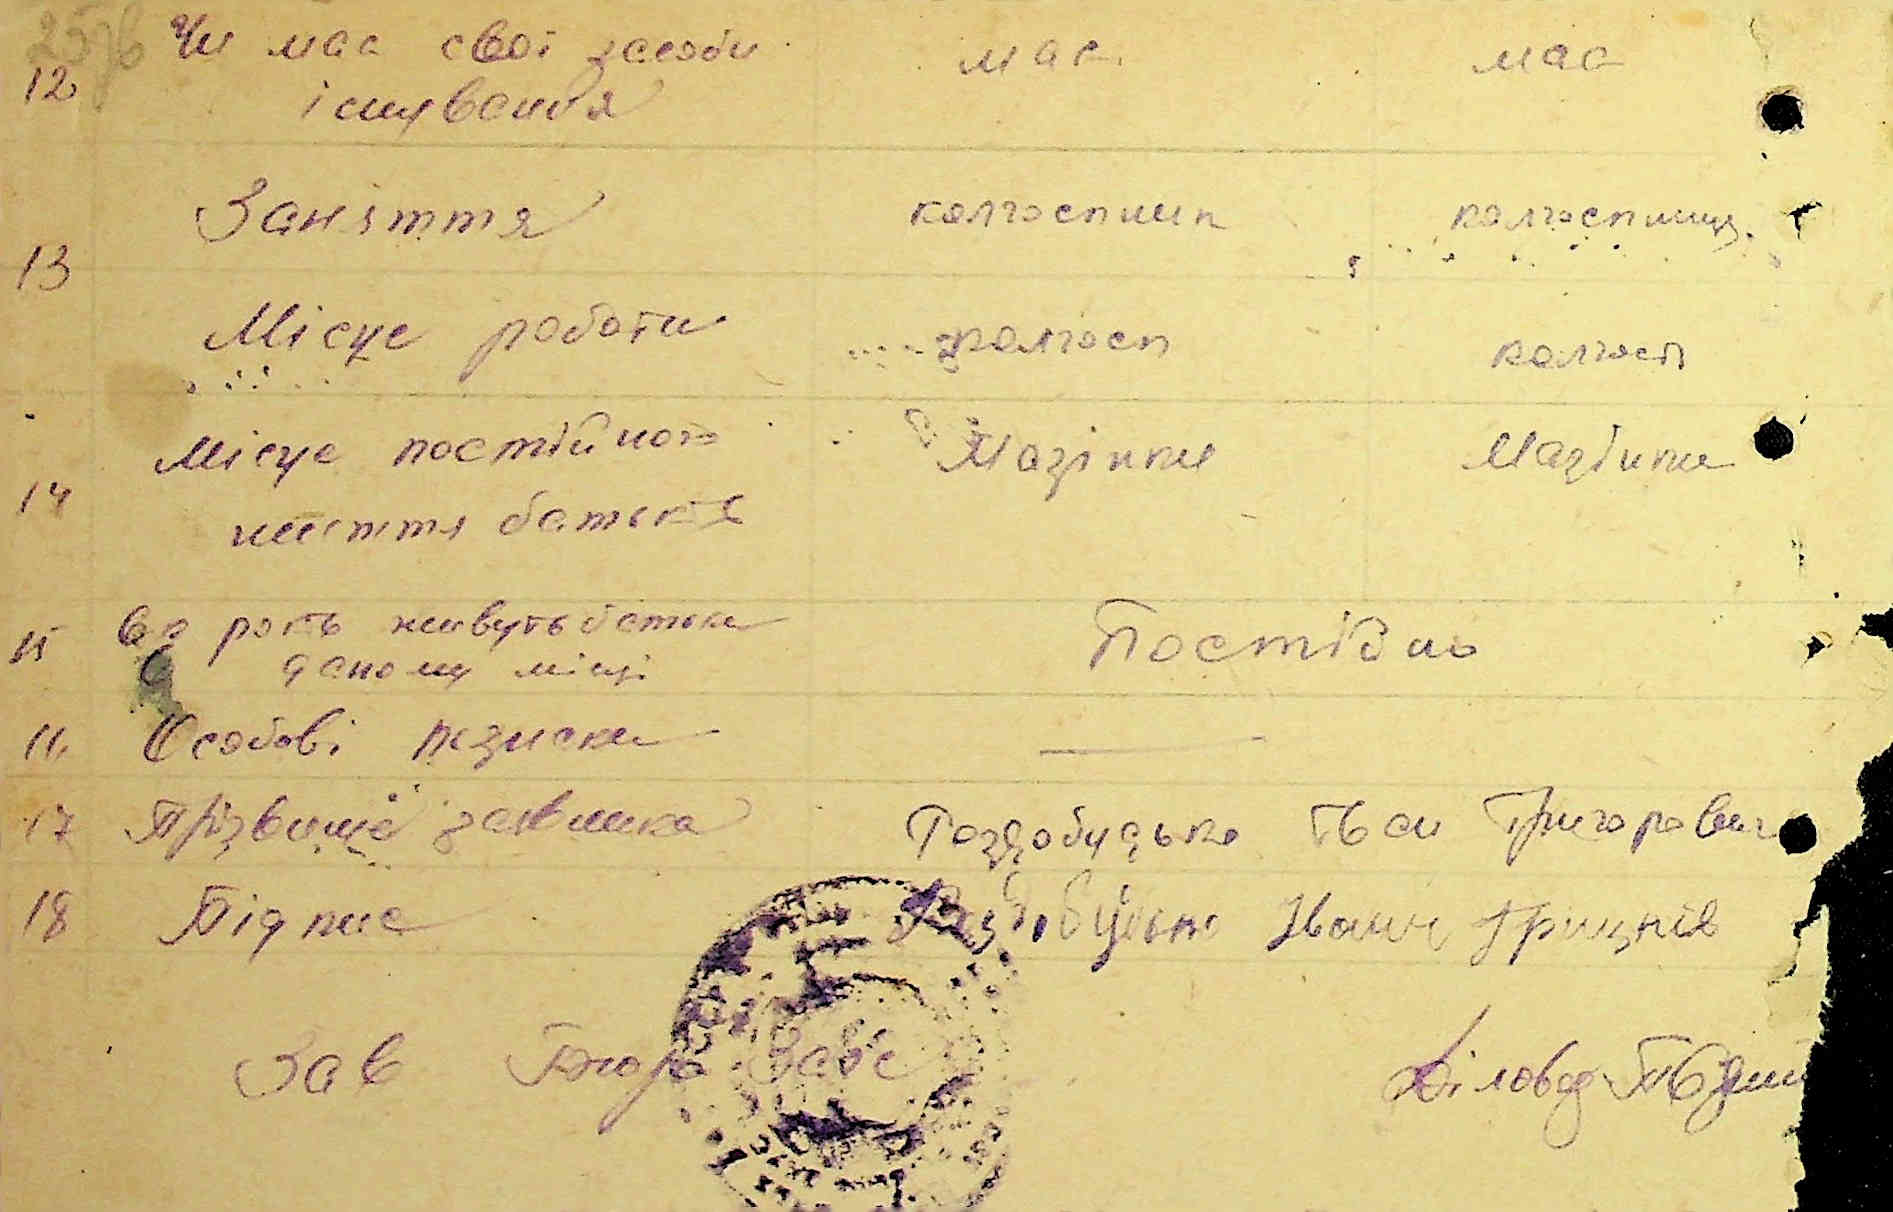 12 Чи має свої засоби має має
існування
13 Заняття колгоспник колгоспниця
Місце роботи колгосп колгосп
14 Місце постійного Мазінки Мазінки
життя батьків
15 років живуть батьки Постійно
даному місці
16 Особові
17 Прізвище заявника Роздобудько Іван Григорович
18 Підпис Роздобудько Іван
Зав Бюро Загс Діловод